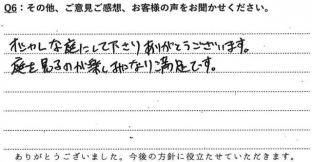 Q6：その他、ご意見ご感想、お客様の声をお聞かせください。
オシャレな庭にして下さりありがとうございます。
庭を見るのが楽しみになり満足です。
ありがとうございました。今後の方針に役立たせていただきます。